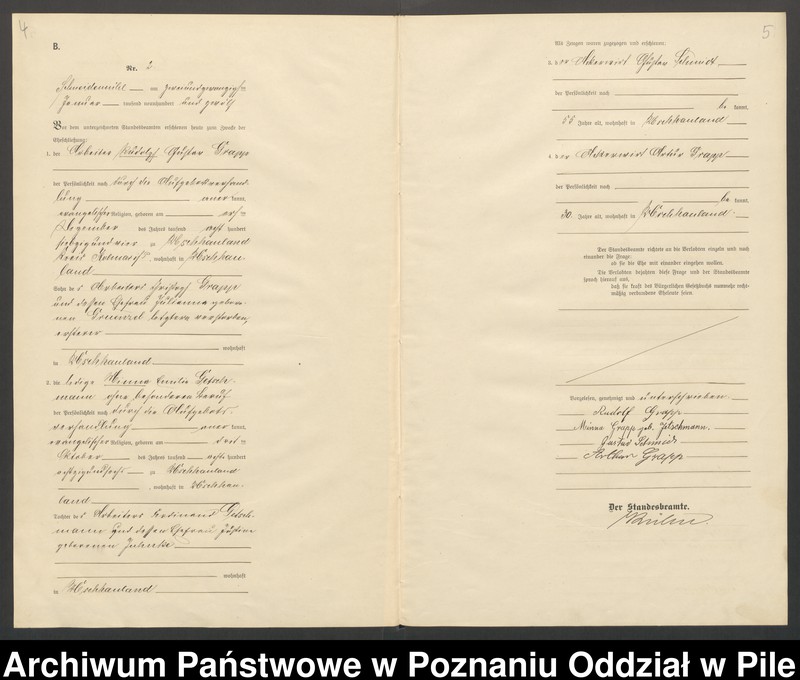 4
B.
Nr. 2
Schneidemühl am zweiundzwanzigsten
Januar tausend neunhundert und zwölf
Vor dem unterzeichneten Standesbeamten erschienen heute zum Zwecke der
Eheschließung:
1. der Arbeiter Rudolf Gustav Grapp
der Persönlichkeit nach durch die Aufgebotsverhand
lung aner kannt,
evangelischer Religion, geboren am
Dezember des Jahres tausend acht hundert
siebzig und vier zu Uschhauland
Kreis Kolmar, wohnhaft in Uschhau
land
Sohn des Arbeiters Christoph Grapp
und dessen Ehefrau Julianna gebore-
nen letztere verstorben,
ersterer
wohnhaft
in Uschhauland
2. die ledige Minna Emilie Jetsch-
mann ohne besonderen Beruf
der Persönlichkeit nach durch die Aufgebots-
verhandlung aner kannt,
evangelischer Religion, geboren am
Oktober des Jahres tausend acht hundert
achtzig und sechs zu Uschhauland
, wohnhaft in Uschhau-
land
Tochter des Arbeiters Ferdinand Jetsch-
mann und dessen Ehefrau Justine
geborenen
wohnhaft
in Uschhauland
5
Als Zeugen waren zugezogen und erschienen:
3. der Ackerwirt Gustav Schmidt
der Persönlichkeit nach
be kannt,
55 Jahre alt, wohnhaft in Uschhauland
4. der Ackerwirt Artur Grapp
der Persönlichkeit nach
be kannt,
30 Jahre alt, wohnhaft in Uschhauland.
Der Standesbeamte richtete an die Verlobten einzeln und nach
einander die Frage:
ob sie die Ehe mit einander eingehen wollen.
Die Verlobten bejahten diese Frage und der Standesbeamte
sprach hierauf aus,
daß sie kraft des Bürgerlichen Gesetzbuchs nunmehr recht-
mäßig verbundene Eheleute seien.
Vorgelesen, genehmigt und unterschrieben.
Rudolf Grapp
Minna Grapp geb. Jetschmann.
Gustav Schmidt
Arthur Grapp
Der Standesbeamte.
Archiwum Państwowe w Poznaniu Oddział w Pile